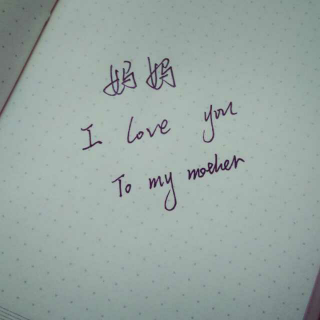 妈妈
I love you
To my mother